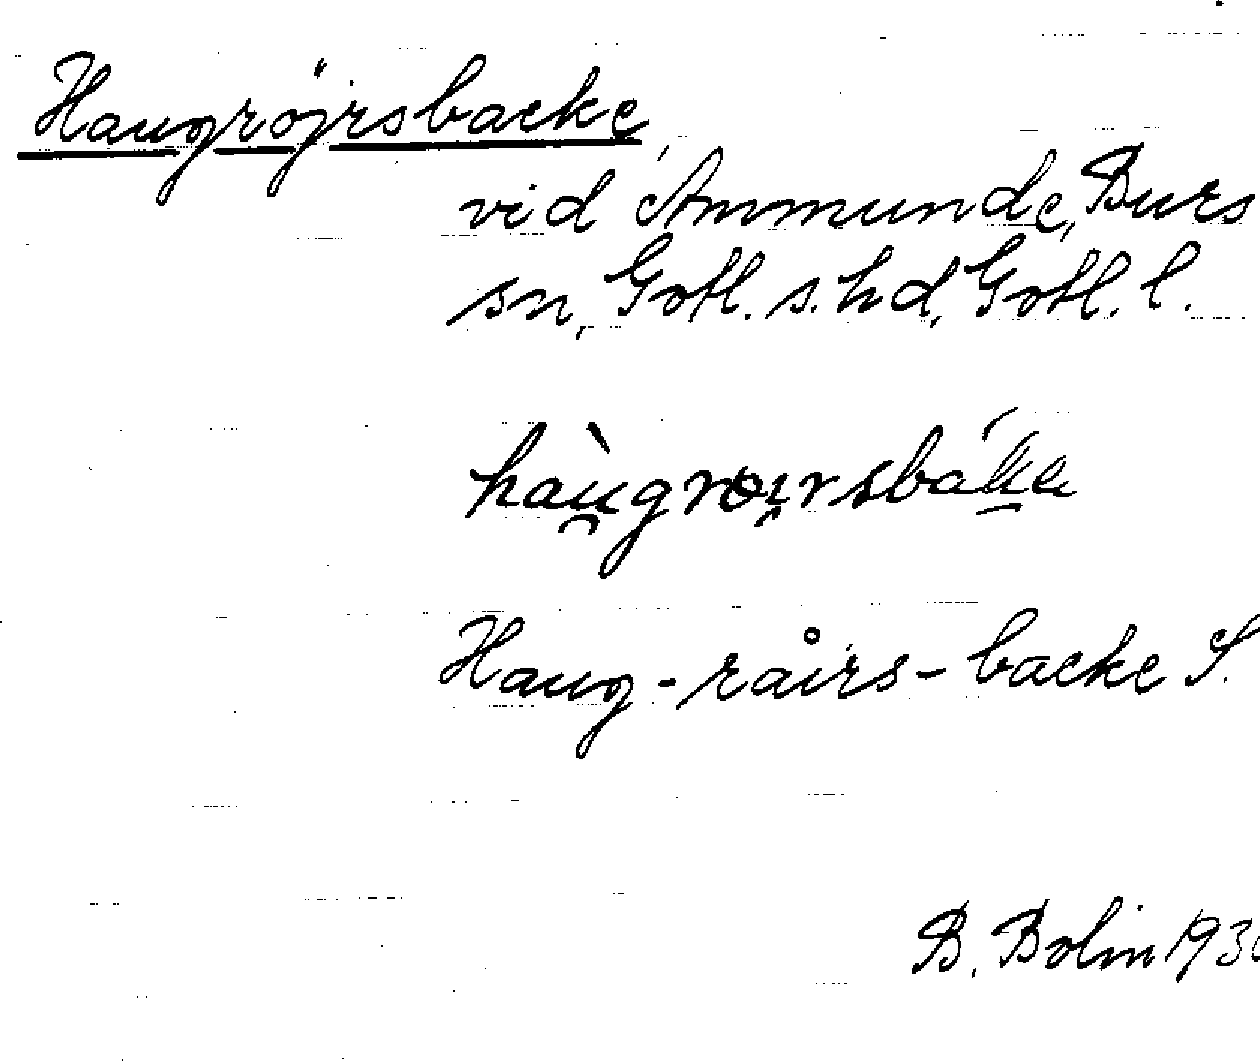 Haugröjrsbacke
vid Ammunde, Burs
sn, Gotl. s. hd, Gotl. l.
Haug-råirs-backe S.
B. Bolin